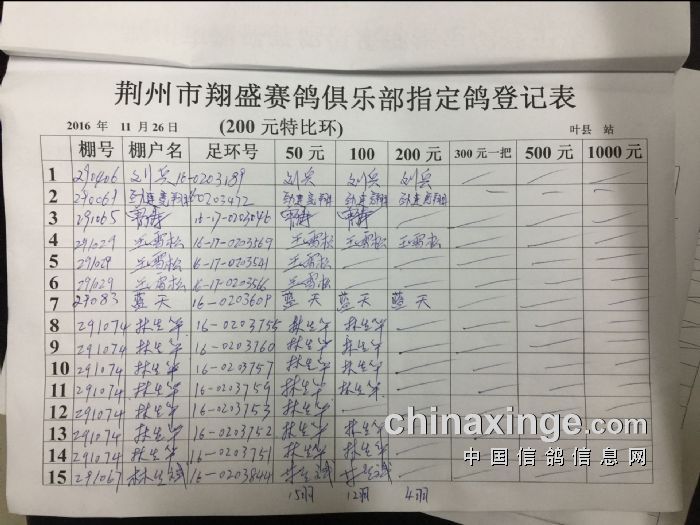 荆州市翔盛赛鸽俱乐部指定鸽登记表
2016 年 11 月 26 日 (200 元特比环) 叶县 站
棚号 棚户名 足环号 50 元 100 200 元 300 元一把 500 元 1000 元
1 290406 刘兵 16-0203189 刘兵 刘兵 刘兵
2 290069
3 291065 16-17-0203046
4 291029 王雷松 16-17-0203569 王雷松 王雷松 王雷松
5 291029 王雷松 16-17-0203541 王雷松
6 291029 王雷松 16-17-0203566 王雷松
7 蓝天 16-0203609 蓝天 蓝天 蓝天
8 291074 林生军 16-0203755 林生军 林生军
9 291074 林生军 16-0203760 林生军 林生军
10 291074 林生军 16-0203757 林生军 林生军
11 291074 林生军 16-0203759 林生军 林生军
12 291074 林生军 16-0203753 林生军
13 291074 林生军 16-0203752 林生军 林生军
14 291074 林生军 16-0203751 林生军 林生军
15 291067 林生斌 16-0203844 林生斌 林生斌
15羽 12羽 4羽
chinaxinge.com
中国信鸽信息网